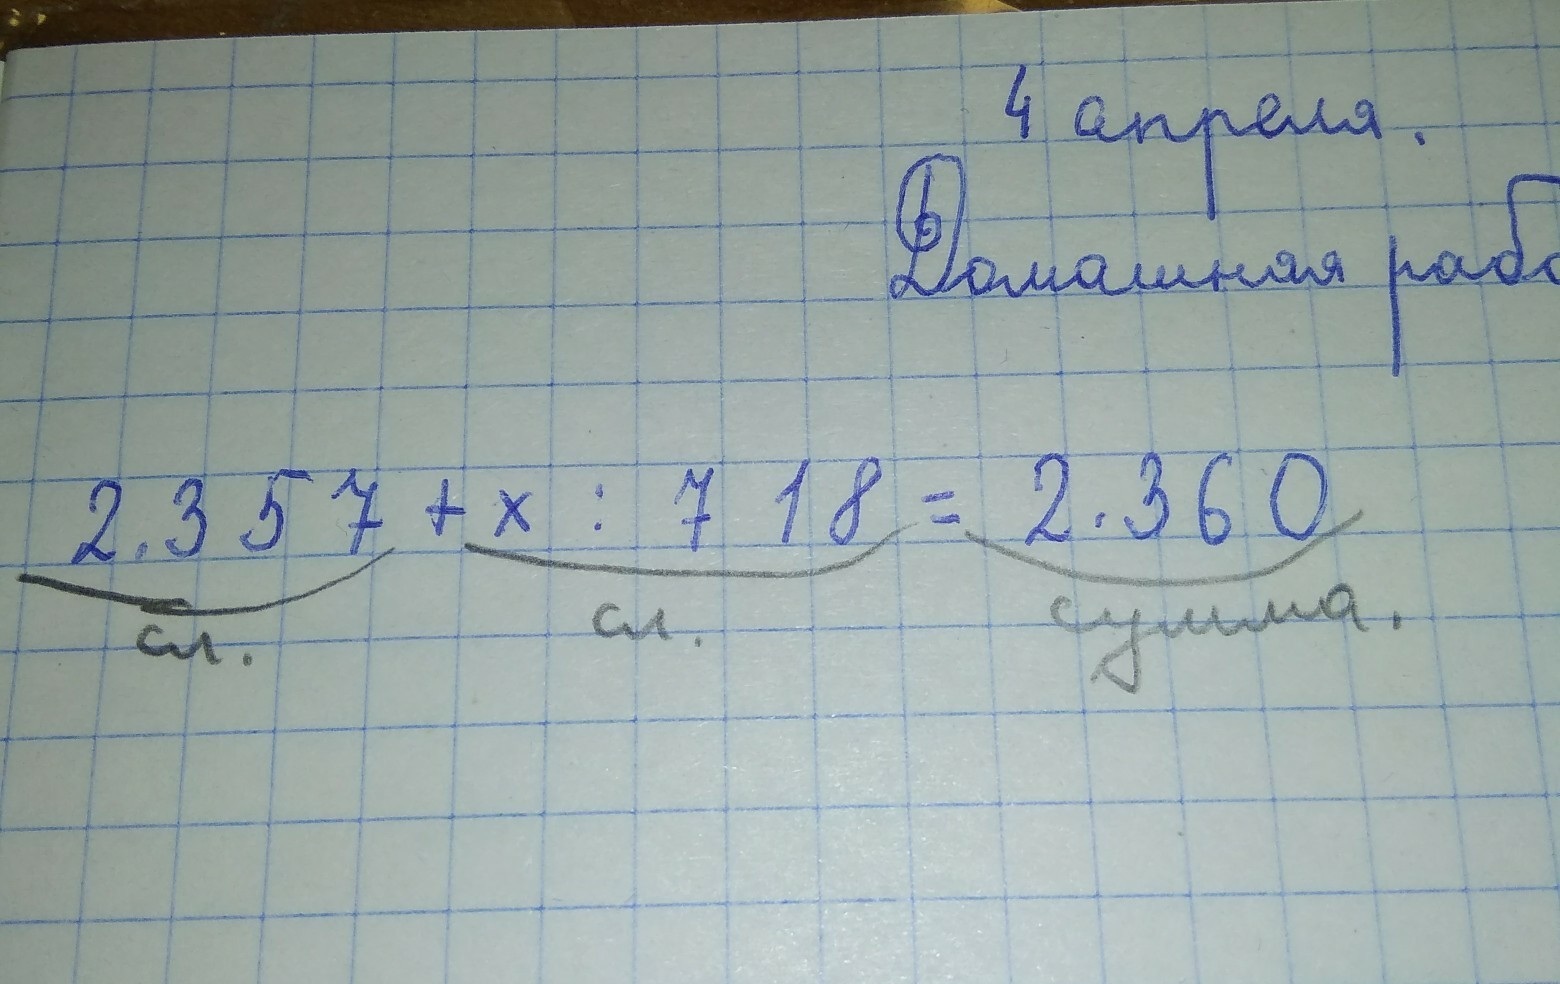 4 апреля.
Домашняя рабо
2.357 + x : 718 = 2.360
сл. сл. сумма.